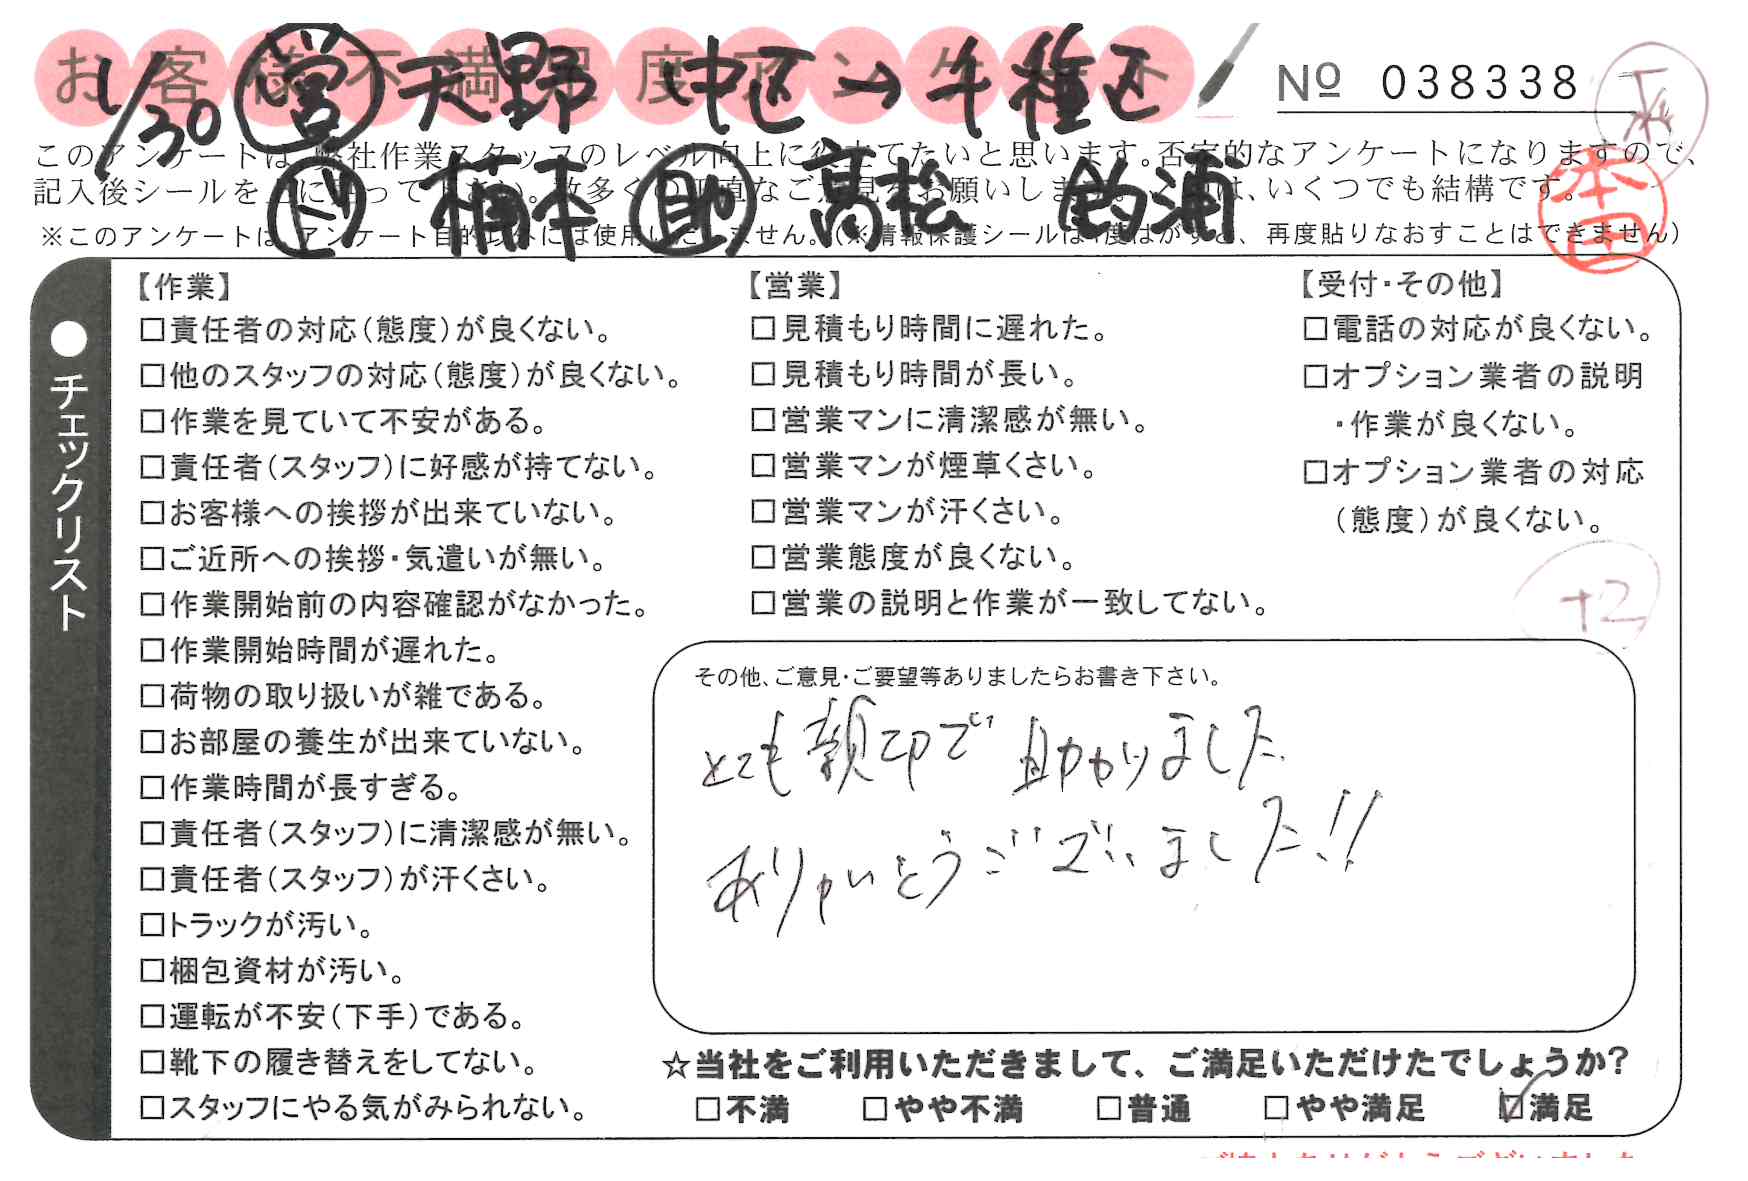 お客様不満足度アンケート
№ 038338
1/30 営 天野 中区→千種区
このアンケートは、弊社作業スタッフのレベル向上に役立てたいと思います。否定的なアンケートになりますので、
記入後シールを上に貼って下さい。数多くの正直なご意見をお願いします。
ド 楠本 助 高松 釣浦
は、いくつでも結構です。
本田
※このアンケートは、アンケート目的以外には使用いたしません。(※情報保護シールは1度はがすと、再度貼りなおすことはできません)
●チェックリスト
【作業】
□責任者の対応(態度)が良くない。
□他のスタッフの対応(態度)が良くない。
□作業を見ていて不安がある。
□責任者(スタッフ)に好感が持てない。
□お客様への挨拶が出来ていない。
□ご近所への挨拶・気遣いが無い。
□作業開始前の内容確認がなかった。
□作業開始時間が遅れた。
□荷物の取り扱いが雑である。
□お部屋の養生が出来ていない。
□作業時間が長すぎる。
□責任者(スタッフ)に清潔感が無い。
□責任者(スタッフ)が汗くさい。
□トラックが汚い。
□梱包資材が汚い。
□運転が不安(下手)である。
□靴下の履き替えをしてない。
□スタッフにやる気がみられない。
【営業】
□見積もり時間に遅れた。
□見積もり時間が長い。
□営業マンに清潔感が無い。
□営業マンが煙草くさい。
□営業マンが汗くさい。
□営業態度が良くない。
□営業の説明と作業が一致してない。
【受付・その他】
□電話の対応が良くない。
□オプション業者の説明
・作業が良くない。
□オプション業者の対応
(態度)が良くない。
+2
その他、ご意見・ご要望等ありましたらお書き下さい。
とても親切で助かりました
ありがとうございました!!
☆当社をご利用いただきまして、ご満足いただけたでしょうか?
□不満 □やや不満 □普通 □やや満足 ☑満足